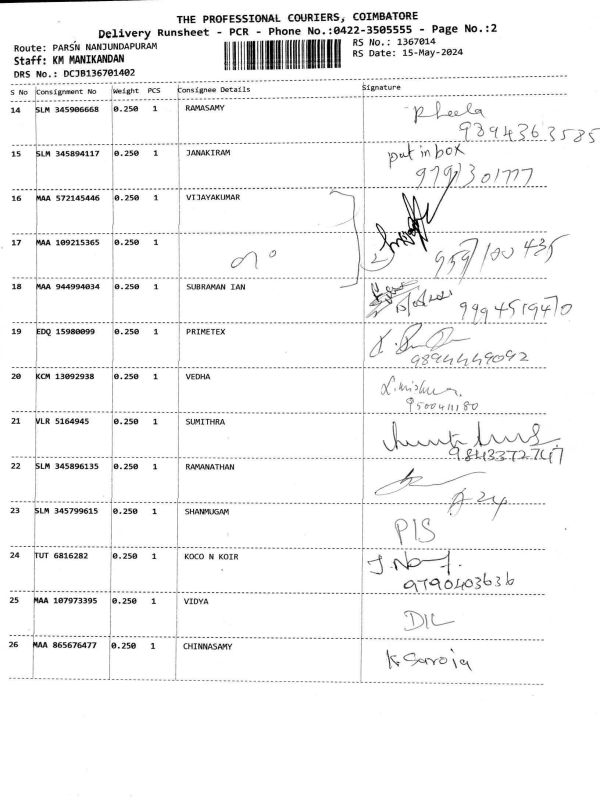 THE PROFESSIONAL COURIERS, COIMBATORE
Delivery Runsheet - PCR - Phone No.:0422-3505555 - Page No.:2
Route: PARSN NANJUNDAPURAM
RS No.: 1367014
Staff: KM MANIKANDAN
RS Date: 15-May-2024
DRS No.: DCJB136701402
S No Consignment No Weight PCS Consignee Details Signature
14 SLM 345906668 0.250 1 RAMASAMY Rheela
9894363585
15 SLM 345894117 0.250 1 JANAKIRAM put in box
16 MAA 572145446 0.250 1 VIJAYAKUMAR
17 MAA 109215365 0.250 1
18 MAA 944994034 0.250 1 SUBRAMAN IAN
9994519470
19 EDQ 15980099 0.250 1 PRIMETEX
9894449092
20 KCM 13092938 0.250 1 VEDHA
9500411180
21 VLR 5164945 0.250 1 SUMITHRA
9843372747
22 SLM 345896135 0.250 1 RAMANATHAN
23 SLM 345799615 0.250 1 SHANMUGAM
PIS
24 TUT 6816282 0.250 1 KOCO N KOIR
9790403636
25 MAA 107973395 0.250 1 VIDYA
DIL
26 MAA 865676477 0.250 1 CHINNASAMY
K Saroja